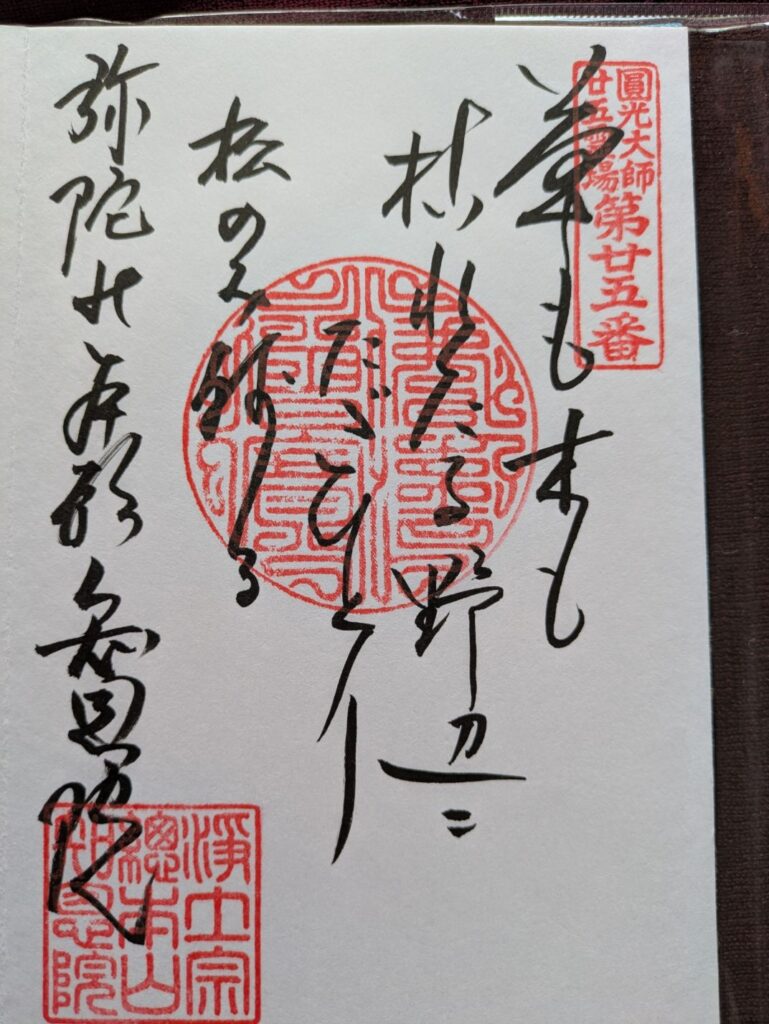 圓光大師
廿五霊場
第廿五番
草も木も
枯れたる野辺ニ
たゞひとり
松のミ残る
弥陀の本願 知恩院
淨土宗
總本山
知恩院